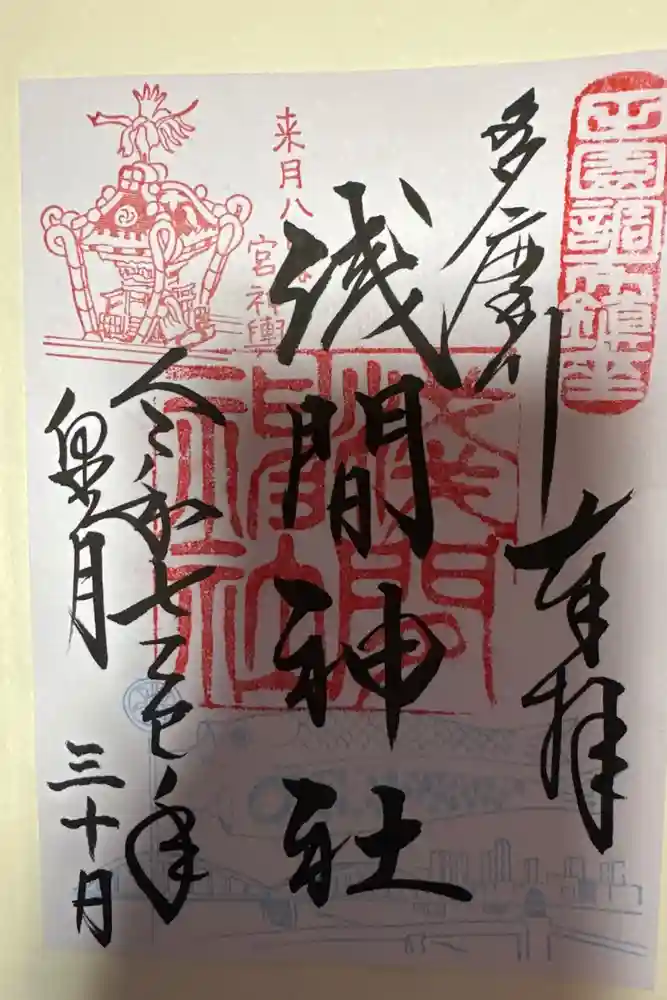 田園調布鎮座
多摩川
奉拝
浅間神社
淺間
神社
来月八
宮神輿
令和七乙巳年
皐月
三十日